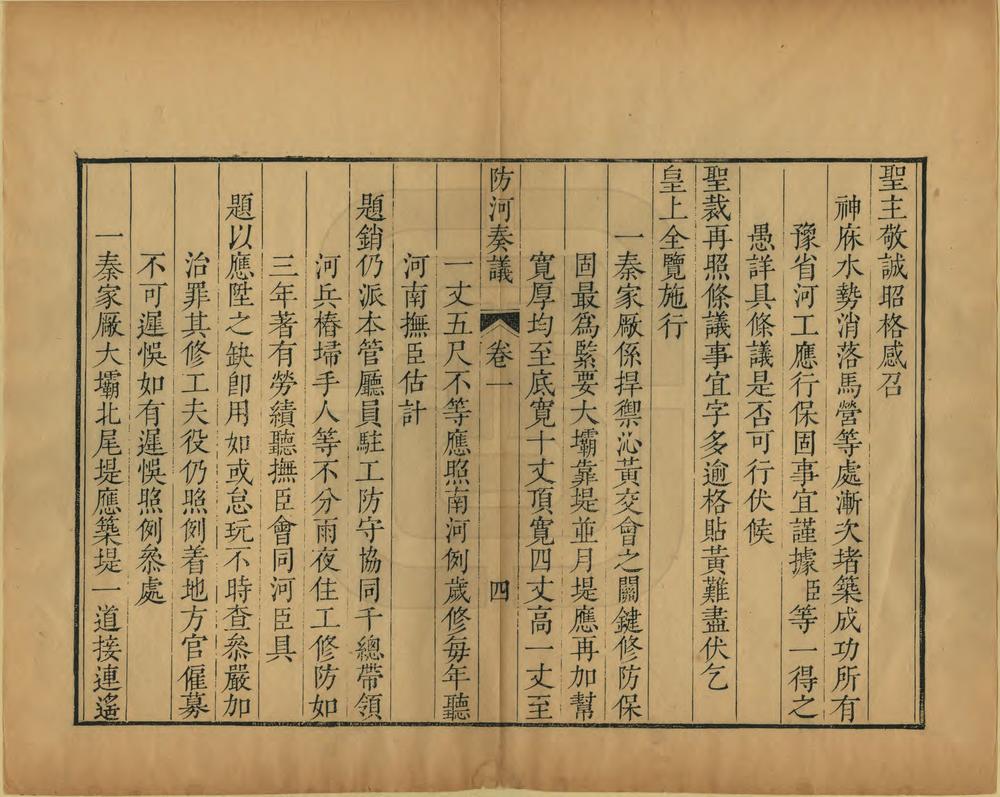 聖主敬誠昭格感召
神庥水勢消落馬營等處漸次堵築成功所有
豫省河工應行保固事宜謹據臣等一得之
愚詳具條議是否可行伏候
聖裁再照條議事宜字多逾格貼黃難盡伏乞
皇上全覽施行
一秦家厰係捍禦沁黃交會之關鍵修防保
固最爲緊要大壩靠堤並月堤應再加幫
寬厚均至底寬十丈頂寬四丈高一丈至
防河奏議 卷一 四
一丈五尺不等應照南河例歲修每年聽
河南撫臣估計
題銷仍派本管廳員駐工防守協同千總帶領
河兵樁埽手人等不分雨夜住工修防如
三年著有勞績聽撫臣會同河臣具
題以應陞之缺卽用如或怠玩不時查叅嚴加
治罪其修工夫役仍照例着地方官僱募
不可遲悞如有遲悞照例叅處
一秦家厰大壩北尾堤應築堤一道接連遙